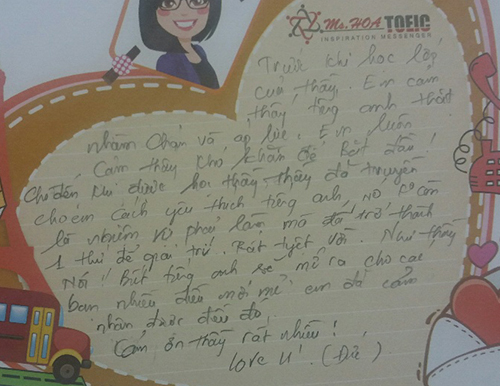 Ms.HOA TOEIC
INSPIRATION MESSENGER
Trước khi học lớp
của thầy. Em cảm
thấy tiếng anh thật
nhàm chán và áp lực. Em luôn
Cảm thấy khó khăn để Bắt đầu!
Cho đến khi được học thầy, thầy đã truyền
cho em cách yêu thích tiếng anh, nó ko còn
là nghiệm vụ phải làm mà đã trở thành
1 thứ để giải trí. Rất tuyệt vời. Như thầy
Nói "Biết tiếng anh sẽ mở ra cho các
bạn nhiều điều mới mẻ" em đã cảm
nhận được điều đó!
Cảm ơn thầy rất nhiều!
love U! (Đức)